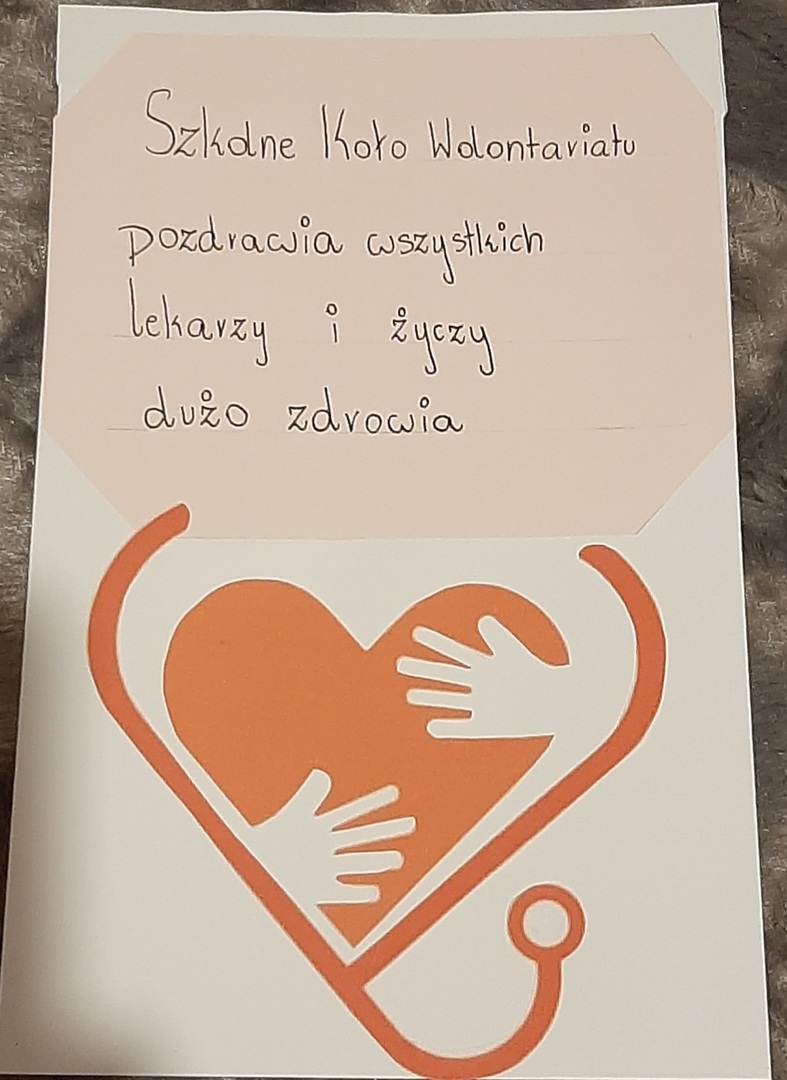 Szkolne Koło Wolontariatu
pozdrawia wszystkich
lekarzy i życzy
dużo zdrowia